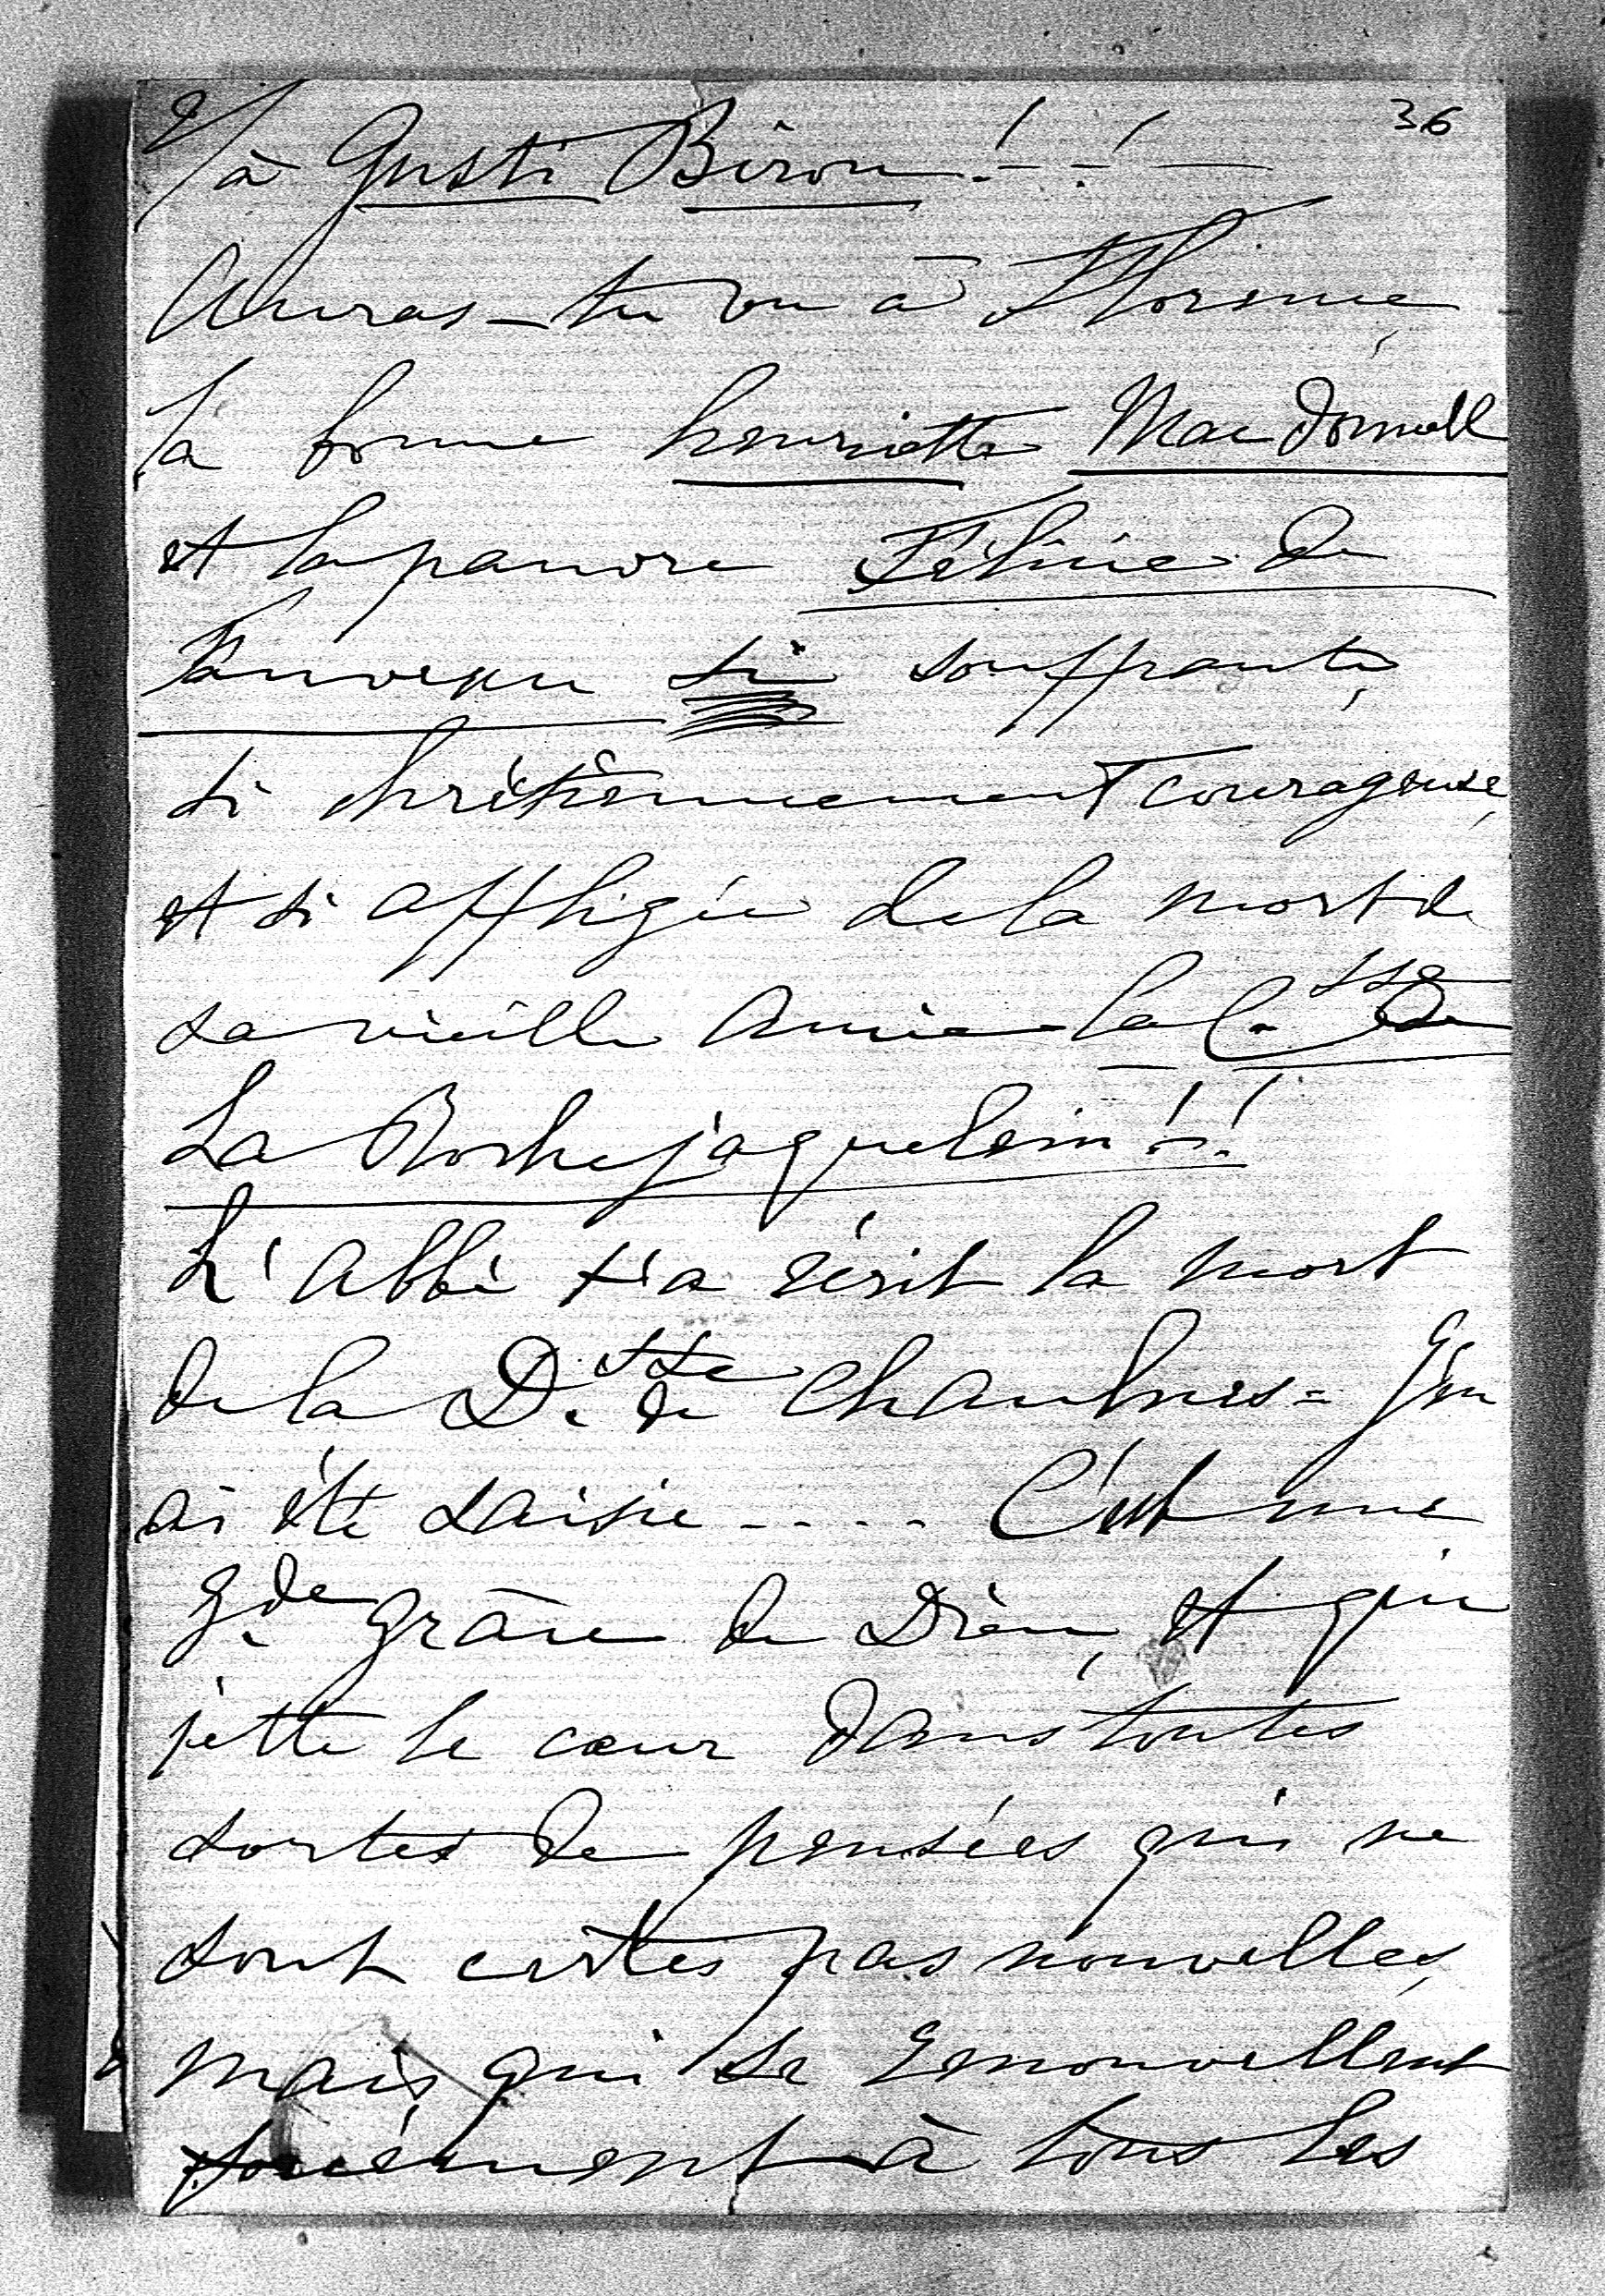 2/ 36
à Gusti Biron ! - ! -
Auras-tu vu à Florence,
la bonne henriette Mac donnell
et la pauvre Félicie de
Fauveau si souffrante,
si chrétiennement courageuse,
et si affligée de la mort de
sa vieille Amie la C.sse de
La Rochejaquelein ! - !
L'Abbé t'a écrit la mort
de la D.sse de Chaulnes = J'en
ai été saisie - - - - - C'est une
g.de grâce de Dieu, et qui
jette le cœur dans toutes
sortes de pensées qui ne
sont certes pas nouvelles,
mais qui se renouvellent
forcément à tous les